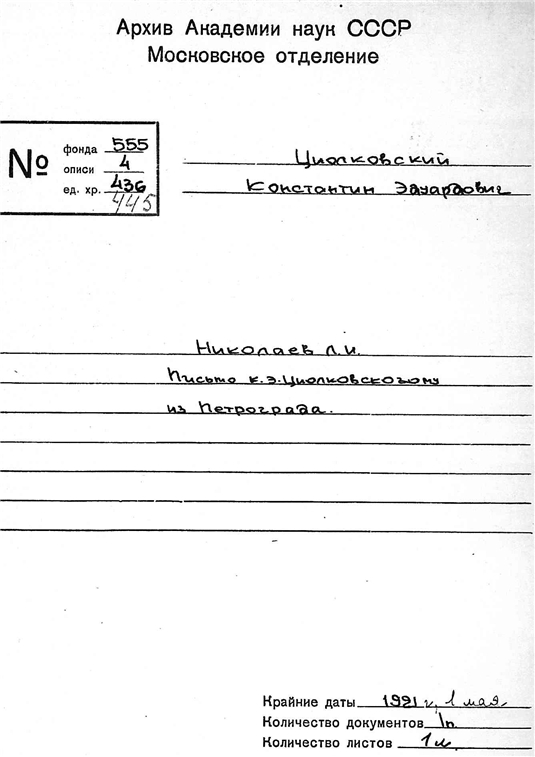 Архив Академии наук СССР
Московское отделение
№
фонда 555
описи 4
ед. хр. 436
445
Циолковский
Константин Эдуардович
Николаев Л.И.
Письмо К.Э.Циолковскогому
из Петрограда.
Крайние даты 1921 г, 1 мая
Количество документов 1п.
Количество листов 1л